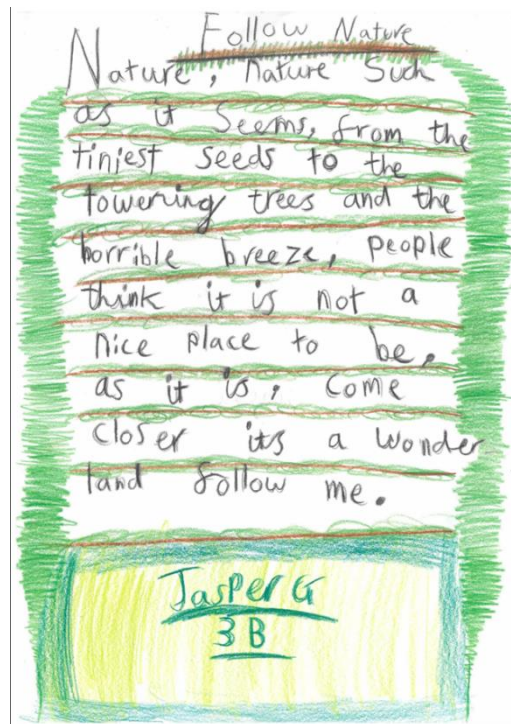 Follow Nature
Nature, nature Such
as it Seems, from the
tiniest seeds to the
towering trees and the
horrible breeze, people
think it is not a
nice place to be,
as it is, Come
closer its a wonder
land follow me.
Jasper G
3B